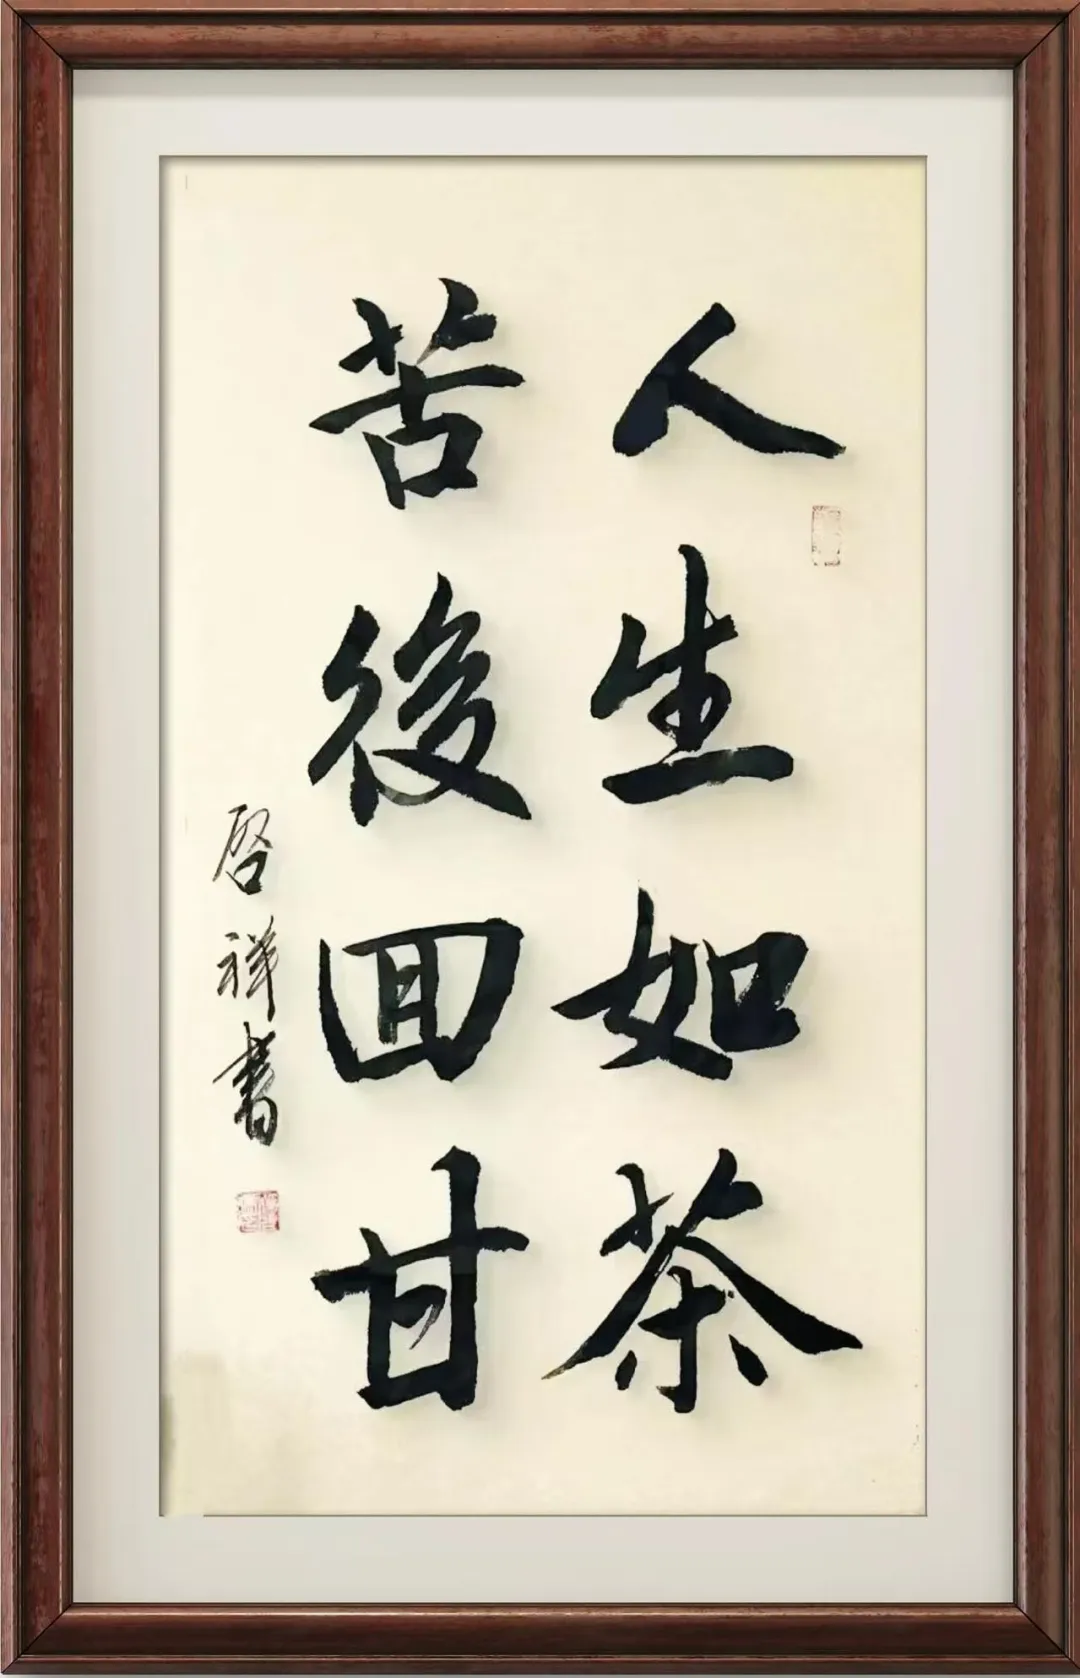 人生如茶
苦後回甘
启祥書